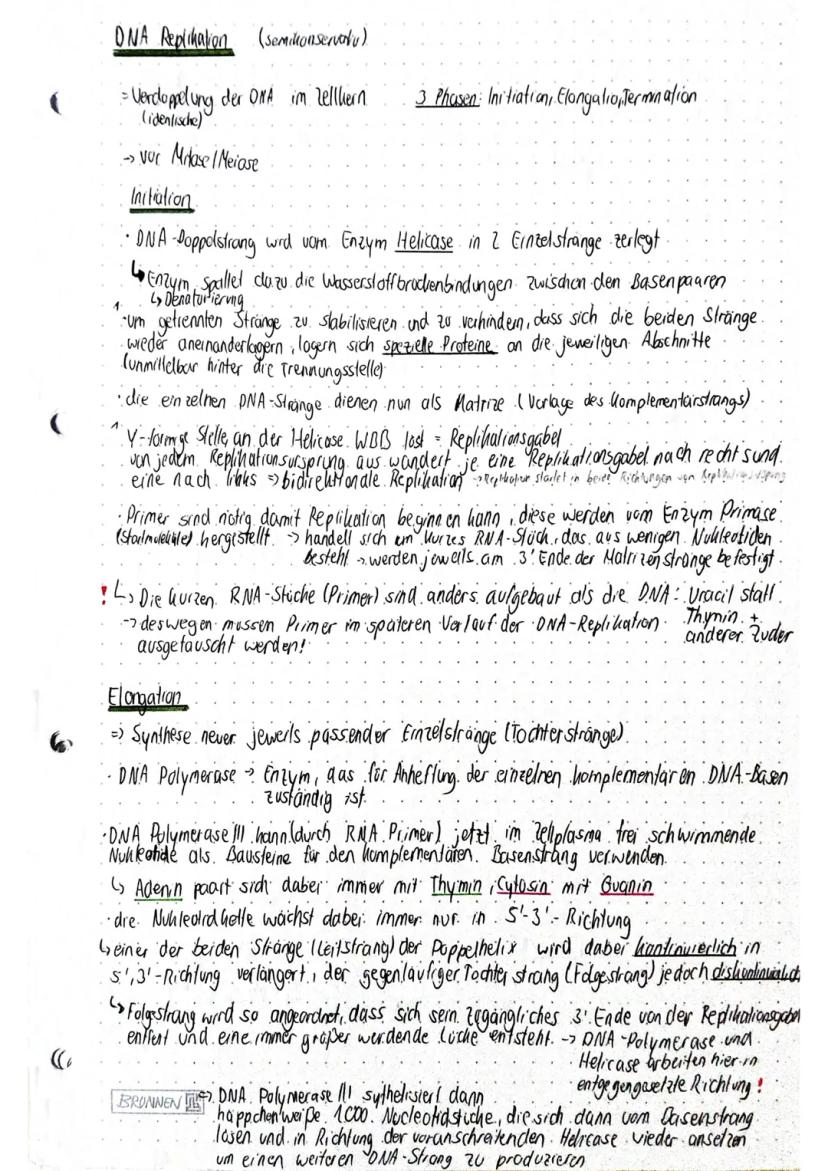 DNA Replikation (semikonservativ)
= Verdoppelung der DNA im Zellkern 3 Phasen: Initiation, Elongation, Termination
(identische)
→ vor Mitose/Meiose
Initiation
· DNA-Doppelstrang wird vom Enzym Helicase in 2 Einzelstränge zerlegt
↳ Enzym spaltet dazu die Wasserstoffbrückenbindungen zwischen den Basenpaaren
↳ Denaturierung
1.
· um getrennten Stränge zu stabilisieren und zu verhindern, dass sich die beiden Stränge
wieder aneinanderlagern, lagern sich spezielle Proteine an die jeweiligen Abschnitte
(unmittelbar hinter die Trennungsstelle)
· die einzelnen DNA-Stränge dienen nun als Matrize (Vorlage des Komplementärstrangs)
Y-formige Stelle, an der Helicase WBB löst = Replikationsgabel
von jedem Replikationsursprung aus wandert je eine Replikationsgabel nach rechts und
eine nach links => bidirektionale Replikation → Replikation startet in beide Richtungen von Replikationsursprung
· Primer sind nötig damit Replikation beginnen kann, diese werden vom Enzym Primase
(Startmoleküle) hergestellt. → handelt sich um kurzes RNA-Stück, das aus wenigen Nukleotiden
besteht → werden jeweils am 3' Ende der Matrizenstränge befestigt.
! ↳ Die kurzen RNA-Stücke (Primer) sind anders aufgebaut als die DNA: Uracil statt
→ deswegen müssen Primer im späteren Verlauf der DNA-Replikation Thymin +
ausgetauscht werden! anderer Zucker
Elongation
=> Synthese neuer jeweils passender Einzelstränge (Tochterstränge)
· DNA Polymerase → Enzym, das für Anheftung der einzelnen komplementären DNA-Basen
zuständig ist.
· DNA Polymerase III kann (durch RNA Primer) jetzt im Zellplasma frei schwimmende
Nukleotide als Bausteine für den komplementären Basenstrang verwenden.
↳ Adenin paart sich dabei immer mit Thymin, Cytosin mit Guanin
· die Nukleotidkette wächst dabei immer nur in 5'-3'-Richtung
↳ einer der beiden Stränge (Leitstrang) der Doppelhelix wird dabei kontinuierlich in
5',3'-Richtung verlängert, der gegenläufiger Tochterstrang (Folgestrang) jedoch diskontinuierlich
↳ Folgestrang wird so angeordnet, dass sich sein zugängliches 3' Ende von der Replikationsgabel
entfernt und eine immer größer werdende Lücke entsteht. → DNA-Polymerase und
Helicase arbeiten hier in
entgegengesetzte Richtung!
BRUNNEN ↔ DNA Polymerase III sythetisiert dann
häppchenweiße 1000 Nucleotidstücke, die sich dann vom Basenstrang
lösen und in Richtung der voranschreitenden Helicase wieder ansetzen
um einen weiteren DNA-Strang zu produzieren